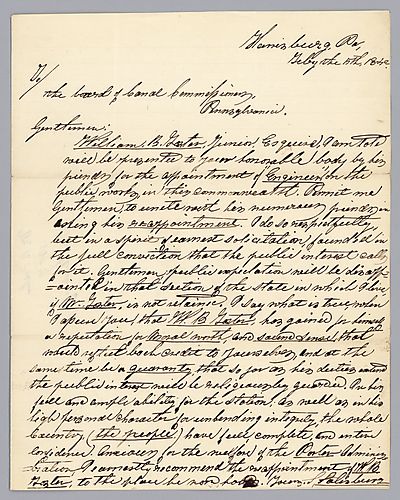 Harrisburg, Pa,
Feby the 8th, 1842
To/
the board of Canal Commissioners,
Pennsylvania.
Gentlemen;
William, B. Foster, Junior, Esquire, I am Told
will be presented to your honorable body by his
friends for the appointment of Engineer on the
public works, in this Commonwealth. Permit me
Gentlemen, to unite with his numerous friends, in
asking his reappointment. I do so respectfully,
but in a spirit of earnest solicitation, founded in
the full conviction that the public interest calls
for it. Gentlemen, public expectation will be disapp-
=ointed in that section of the state in which I live
if Mr. Foster, is not retained. I say what is true, when
I assure you, that W. B. Foster, has gained for himself
a reputation for moral worth, and that
would reflect back credit to yourselves, and at the
same time be a guaranty, that so far as his duties extend
the public interest will be religiously guarded. In his
full and ample ability for the station, as well as in his
high personal character for unbending integrity, the whole
Country (the people) have full, complete, and entire
confidence. Anxious for the welfare of the Porter Adminis-
=tration, I earnestly recommend the reappointment of W. B.
Foster, to the place he now holds. Yours,